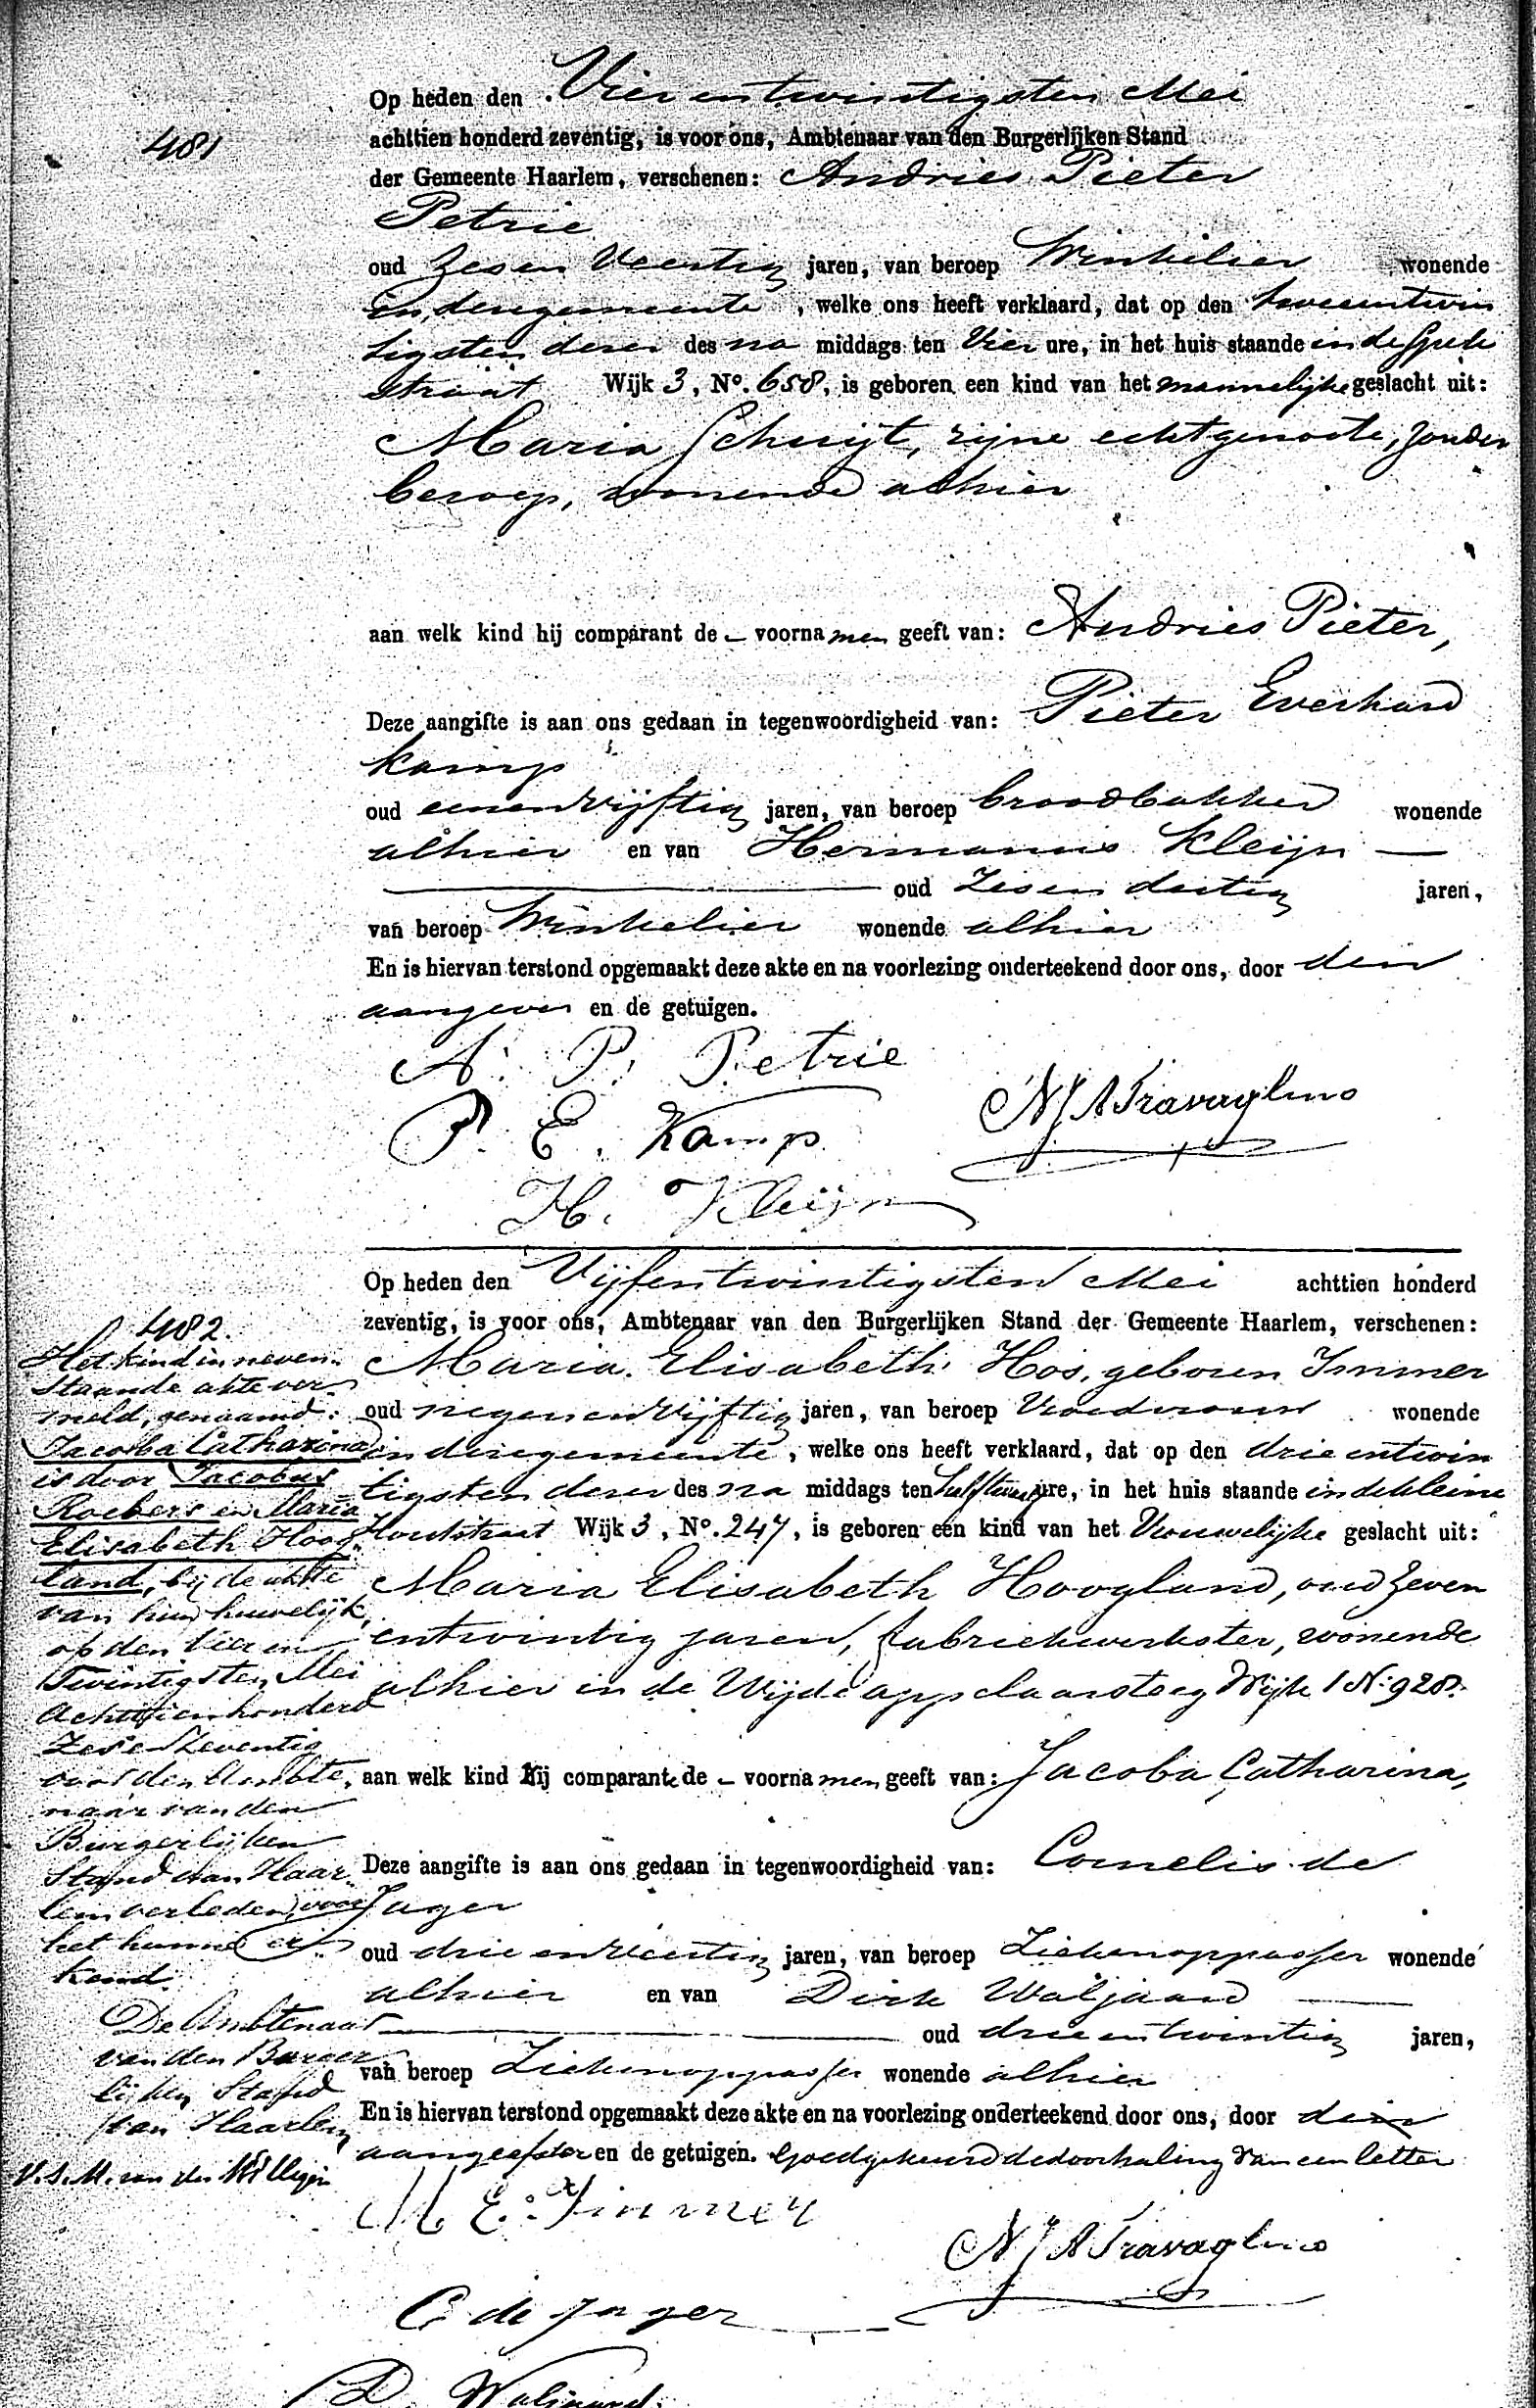 481
Op heden den Vierentwintigsten Mei
achttien honderd zeventig, is voor ons, Ambtenaar van den Burgerlijken Stand
der Gemeente Haarlem, verschenen: Andries Pieter
Petrie
oud Zesen Veertig jaren, van beroep Winkelier wonende
in deze gemeente, welke ons heeft verklaard, dat op den tweeentwin
tigsten dezer des na middags ten Vier ure, in het huis staande in de
straat Wijk 3, No. 658, is geboren een kind van het mannelijke geslacht uit:
Maria Schuijt, zijne echtgenoote, zonder
beroep, wonende alhier
aan welk kind hij comparant de – voornamen geeft van: Andries Pieter,
Deze aangifte is aan ons gedaan in tegenwoordigheid van: Pieter Everhard
Kamp
oud eenenvijftig jaren, van beroep broodbakker wonende
alhier en van Hermanus Kleijn —
— oud Zesen dertig jaren,
van beroep Winkelier wonende alhier
En is hiervan terstond opgemaakt deze akte en na voorlezing onderteekend door ons, door den
aangever en de getuigen.
A. P. Petrie
N J A Travaglino
P. E. Kamp
H. Kleijn
482.
Het kind in neven-
staande akte ver-
meld, genaamd:
Jacoba Catharina
is door Jacobus
Roebers en Maria
Elisabeth Hoog-
land, bij de akte
van hun huwelijk,
op den Vier en
Twintigsten Mei
Achttienhonderd
Zes en Zeventig
voor den Ambte-
naar van den
Burgerlijken
Stand van Haar-
lem verleden, voor
het hunne er-
kend.
De Ambtenaar
van den Burger
lijken Stand
van Haarlem
V. S. M. van der Willigen
Op heden den Vijfentwintigsten Mei achttien honderd
zeventig, is voor ons, Ambtenaar van den Burgerlijken Stand der Gemeente Haarlem, verschenen:
Maria Elisabeth Hos, geboren Immer
oud negenenvijftig jaren, van beroep Vroedvrouw wonende
in deze gemeente, welke ons heeft verklaard, dat op den drieentwin
tigsten dezer des na middags ten half ure, in het huis staande in de kleine
Houtstraat Wijk 3, No. 247, is geboren een kind van het Vrouwelijke geslacht uit:
Maria Elisabeth Hoogland, oud zeven
entwintig jaren, fabriekwerkster, wonende
alhier in de Wijde appelaarsteeg Wijk 1 No. 928.
aan welk kind Zij comparante de – voornamen geeft van: Jacoba Catharina,
Deze aangifte is aan ons gedaan in tegenwoordigheid van: Cornelis de
Jager
oud drieenveertig jaren, van beroep Ziekenoppasser wonende
alhier en van Dirk Waljaard —
— oud drieentwintig jaren,
van beroep Ziekenoppasser wonende alhier
En is hiervan terstond opgemaakt deze akte en na voorlezing onderteekend door ons, door de
aangeefster en de getuigen. Goedgekeurd de doorhaling van een letter
M. E. Immer
N J A Travaglino
C. de Jager
D. Waljaard.